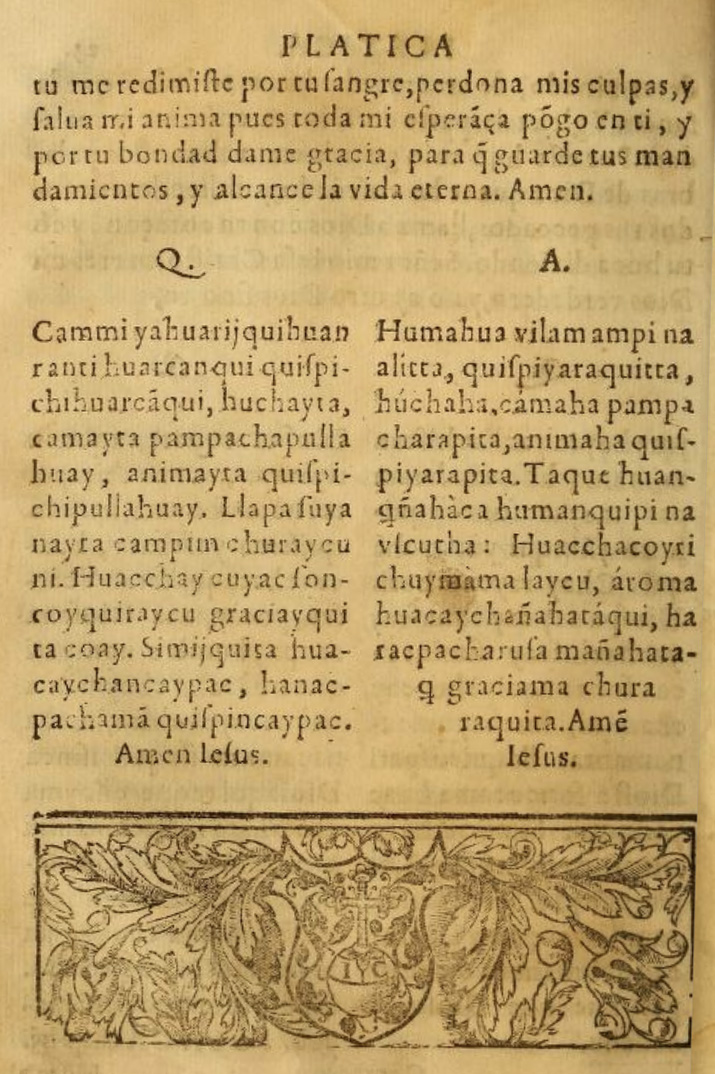 PLATICA
tu me redimiſte por tu ſangre, perdona mis culpas, y
ſalua mi anima pues toda mi eſperãça põgo en ti, y
por tu bondad dame gracia, para q̃ guarde tus man
damientos, y alcance la vida eterna. Amen.
Q.
Cammi yahuarijquihuan
ranti huarcanqui quiſpi-
chihuarcãqui, huchayta,
camayta pampachapulla
huay, animayta quiſpi-
chipullahuay. Llapa ſuya
nayta campim churaycu
ni. Huacchay cuyac ſon-
coyquiraycu graciayqui
ta coay. Simijquita hua-
caychancaypac, hanac-
pachamã quiſpincaypac.
Amen Ieſus.
A.
Humahua vilamampi na
alitta, quiſpiyaraquitta,
húchaha, cámaha pampa
charapita, animaha quiſ-
piyarapita. Taque huan-
q̃ñahàca humanquipi na
vſcutha: Huacchacoyri
chuymama laycu, ároma
huacaychañahatáqui, ha
racpacharuſa mañahata-
q̃ graciama chura
raquita. Amẽ
Ieſus.
IYC